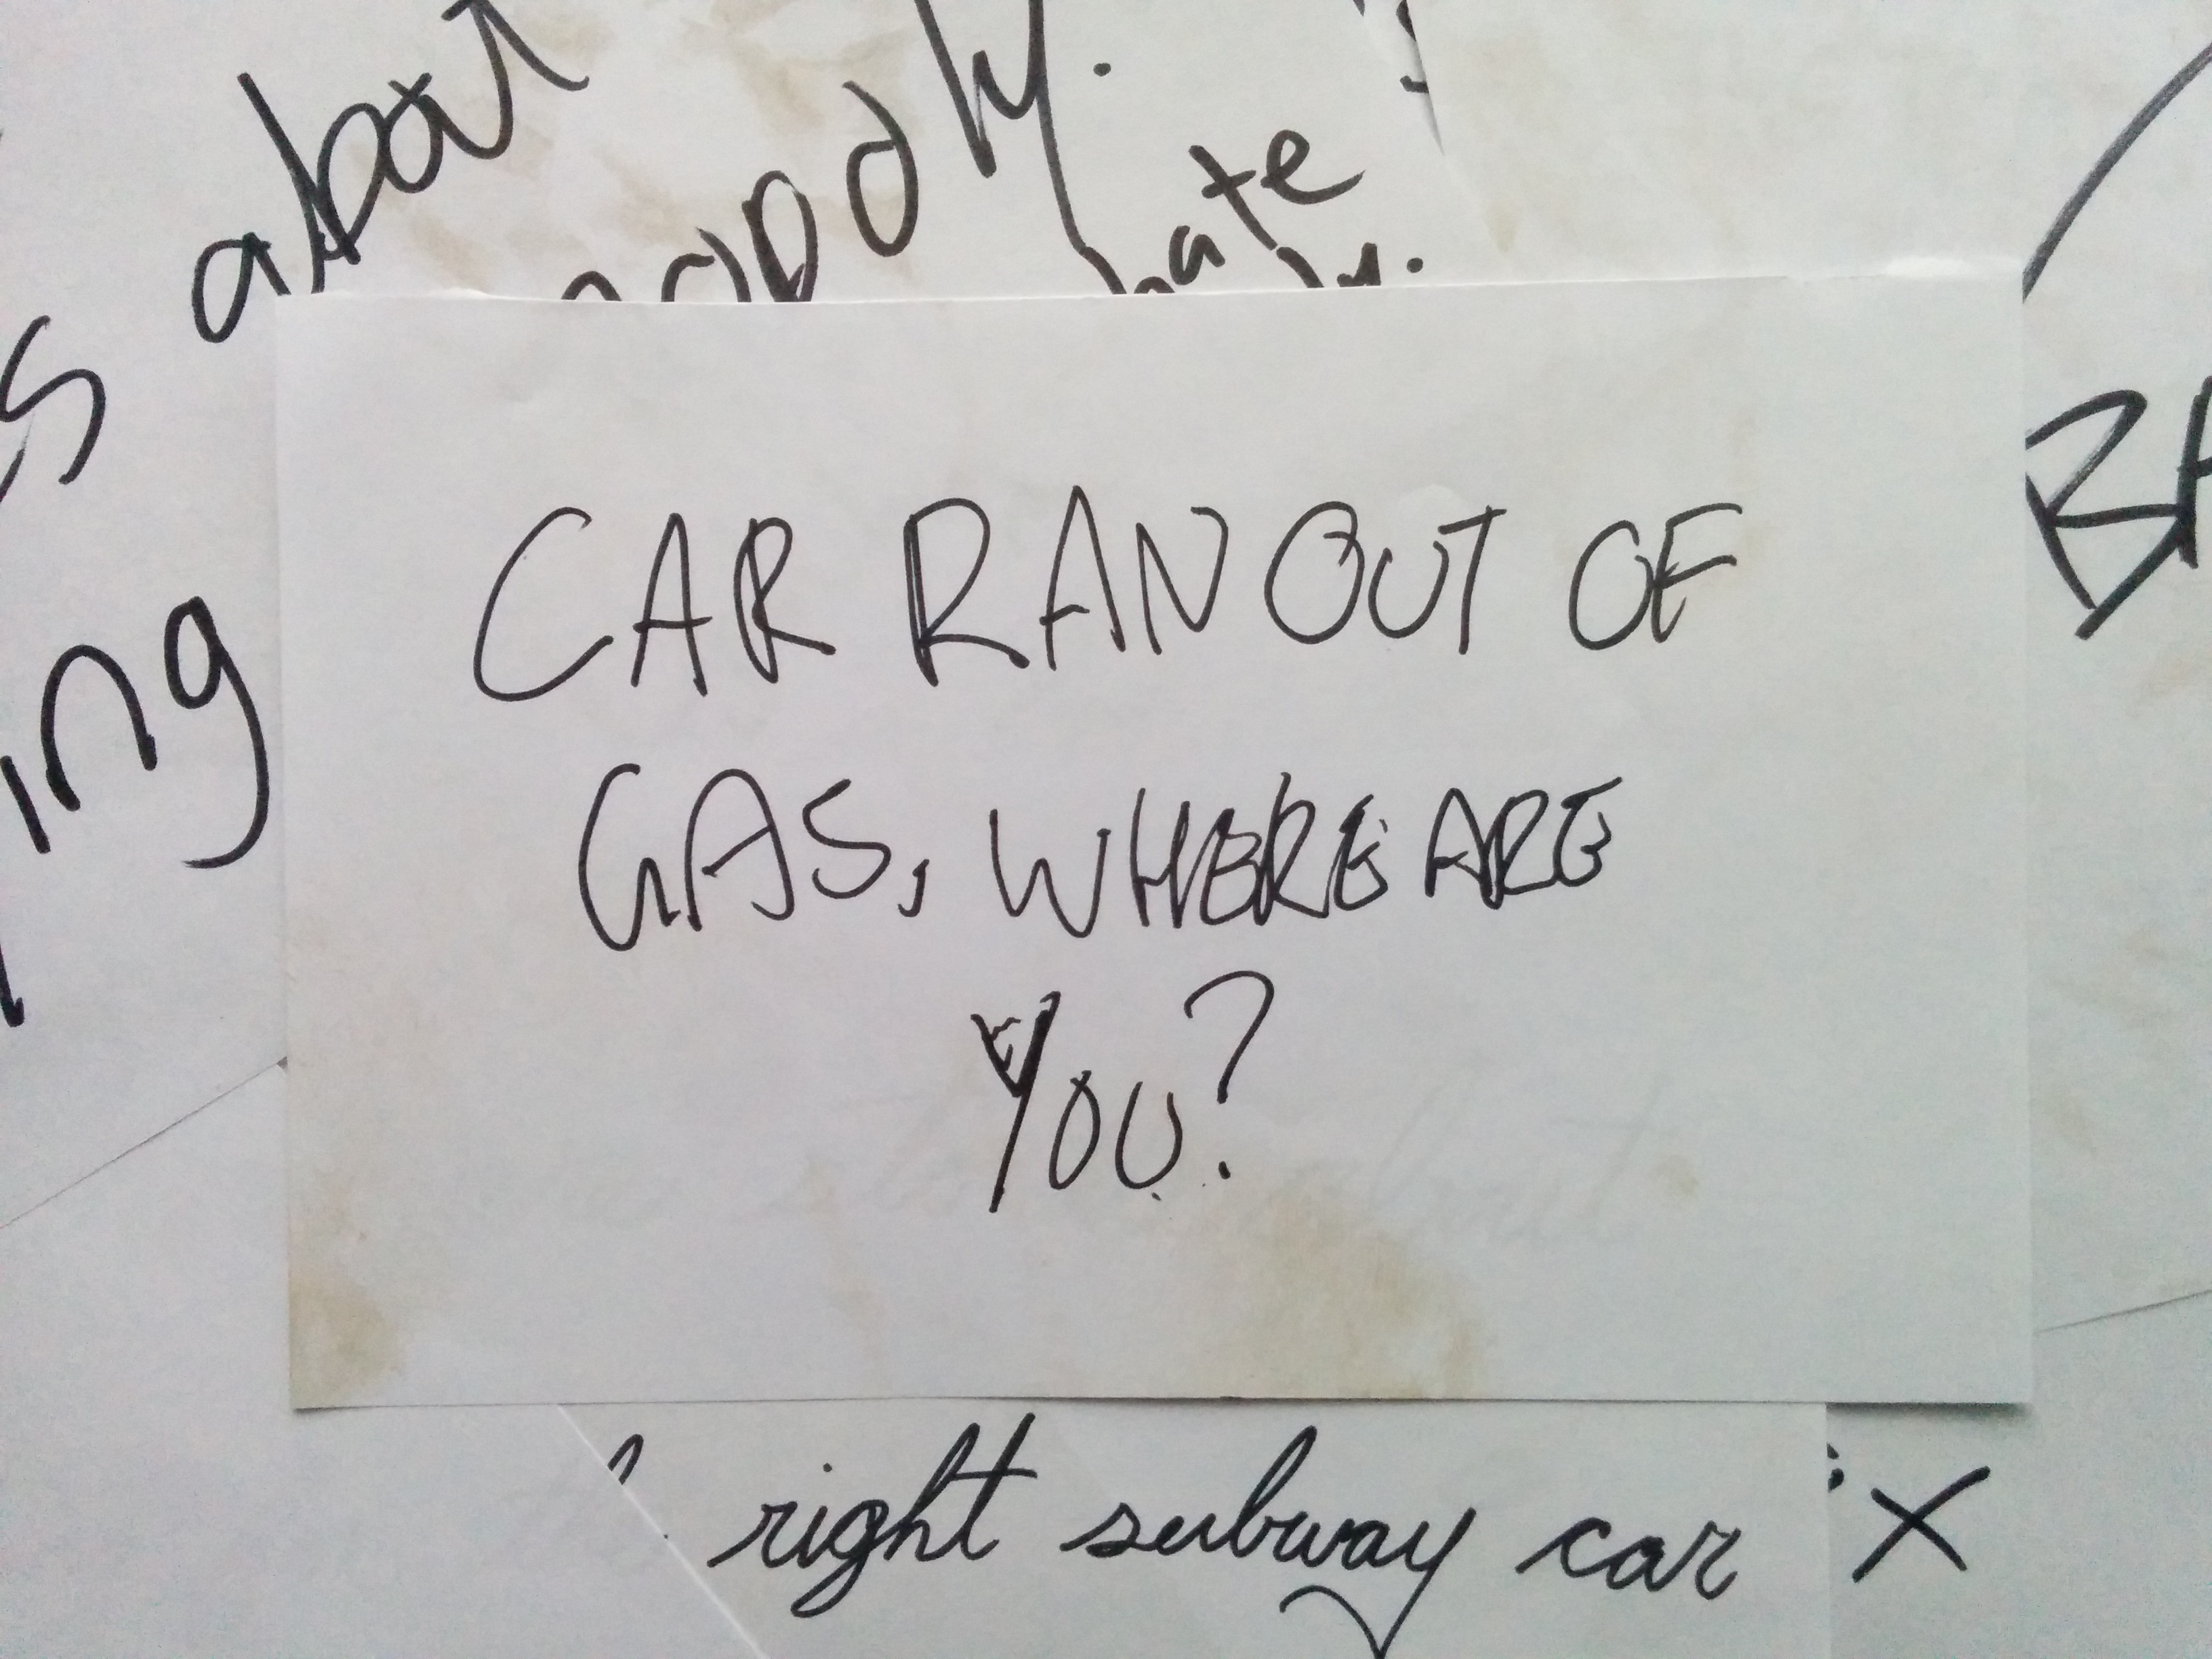 s about
ate
ing
CAR RAN OUT OF
GAS, WHERE ARE
YOU?
right subway car
X